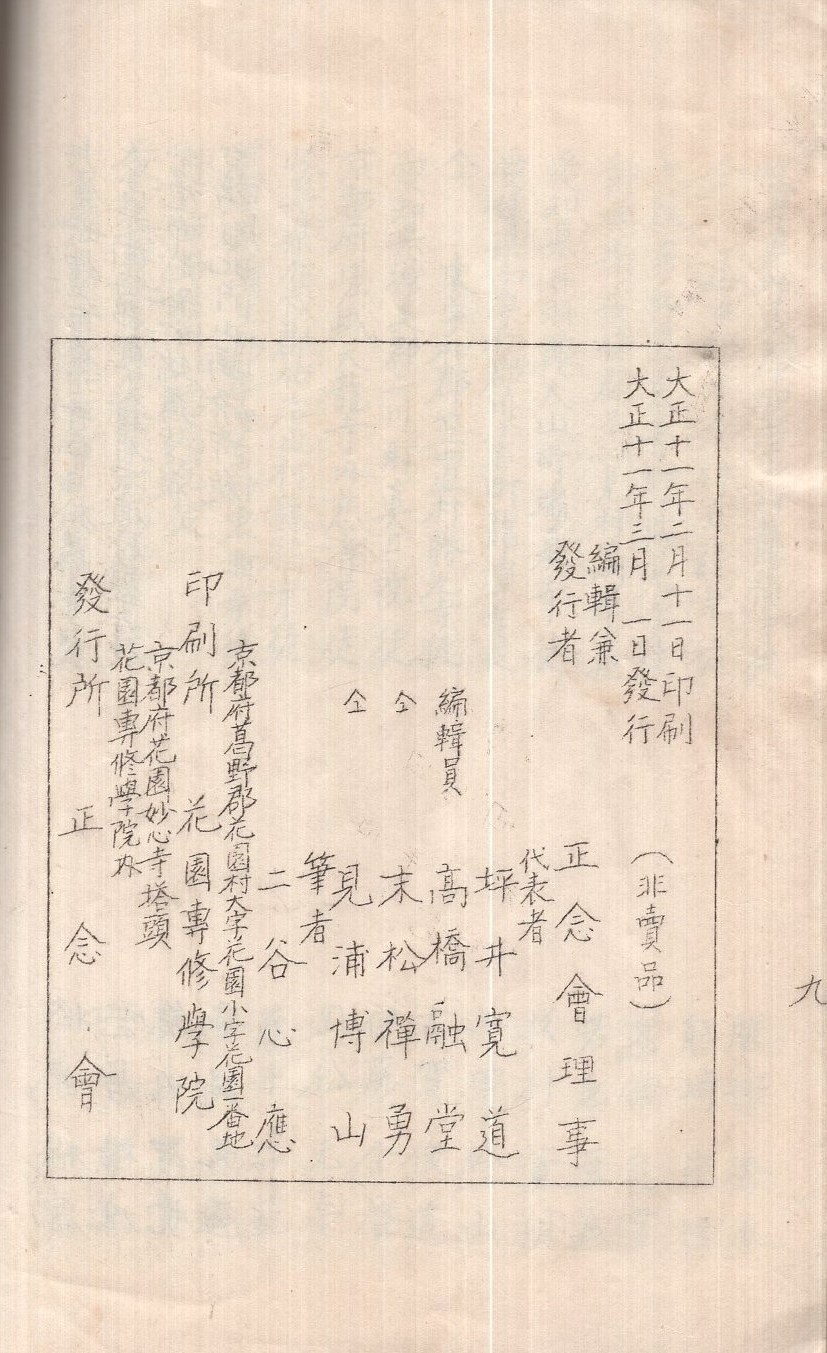 大正十一年二月十一日印刷
大正十一年三月一日發行
（非賣品）
編輯兼
發行者
正念會理事
代表者
坪井寛道
編輯員 高橋融堂
仝 末松禪勇
仝 見浦博山
筆者
二谷心應
京都府葛野郡花園村大字花園小字花園一番地
印刷所 花園專修學院
京都府花園妙心寺塔頭
花園專修學院內
發行所 正念會
九